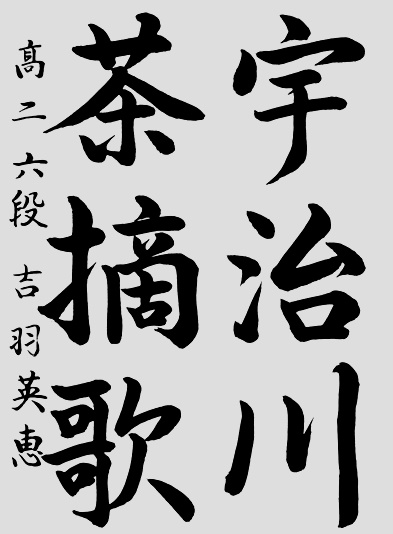 宇治川
茶摘歌
高二 六段 吉羽英恵